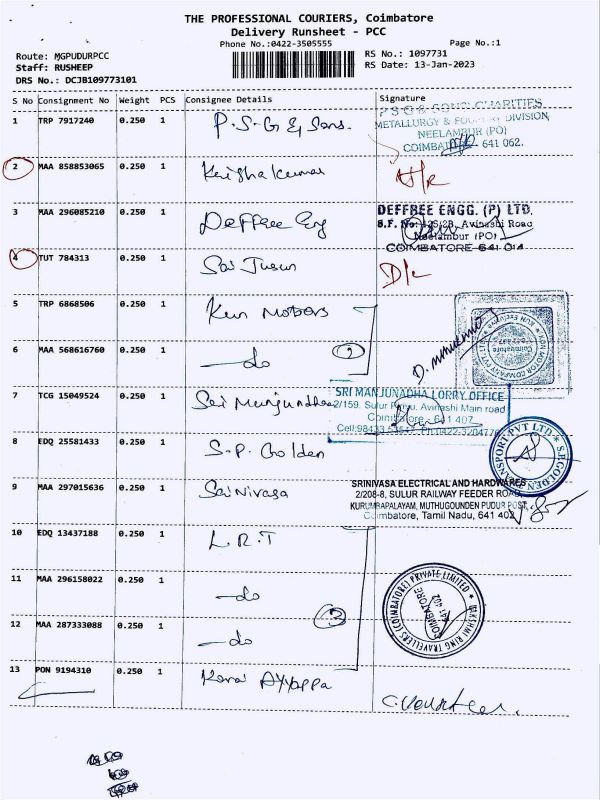 THE PROFESSIONAL COURIERS, Coimbatore
Delivery Runsheet - PCC
Phone No.:0422-3505555
Page No.:1
Route: MGPUDURPCC
RS No.: 1097731
Staff: RUSHEEP
RS Date: 13-Jan-2023
DRS No.: DCJB109773101
S No Consignment No Weight PCS Consignee Details Signature
1 TRP 7917240 0.250 1 P.S.G & Sons.
P S G & SONS CHARITIES
METALLURGY & FOUNDRY DIVISION,
NEELAMBUR (PO)
COIMBATORE - 641 062.
2 MAA 858853065 0.250 1 Krishakumar
3 MAA 296085210 0.250 1 Deffree Eng
DEFFREE ENGG. (P) LTD.
S.F. No: Avinashi Road
Neelambur (PO)
COIMBATORE-641 014
4 TUT 784313 0.250 1 Sai D/L
5 TRP 6868506 0.250 1 Kun Motors
6 MAA 568616760 0.250 1 —do 2
KUN MOTOR COMPANY PVT LTD
Coimbatore
7 TCG 15049524 0.250 1 Sri Manjunadha
SRI MANJUNADHA LORRY OFFICE
2/159, Sulur Avinashi Main road
Coimbatore - 641 407
8 EDQ 25581433 0.250 1 S.P. Golden
S.P.GOLDEN TRANSPORT PVT LTD
9 MAA 297015636 0.250 1 Sainivasa
SRINIVASA ELECTRICAL AND HARDWARES
2/208-8, SULUR RAILWAY FEEDER ROAD,
KURUMBAPALAYAM, MUTHUGOUNDEN PUDUR POST,
Coimbatore, Tamil Nadu, 641 402
10 EDQ 13437188 0.250 1 L.R.T
11 MAA 296158022 0.250 1 —do
12 MAA 287333088 0.250 1 —do 3
LAKSHMI RING TRAVELLERS (COIMBATORE) PRIVATE LIMITED
COIMBATORE
641 402
13 PON 9194310 0.250 1 Ayyappa